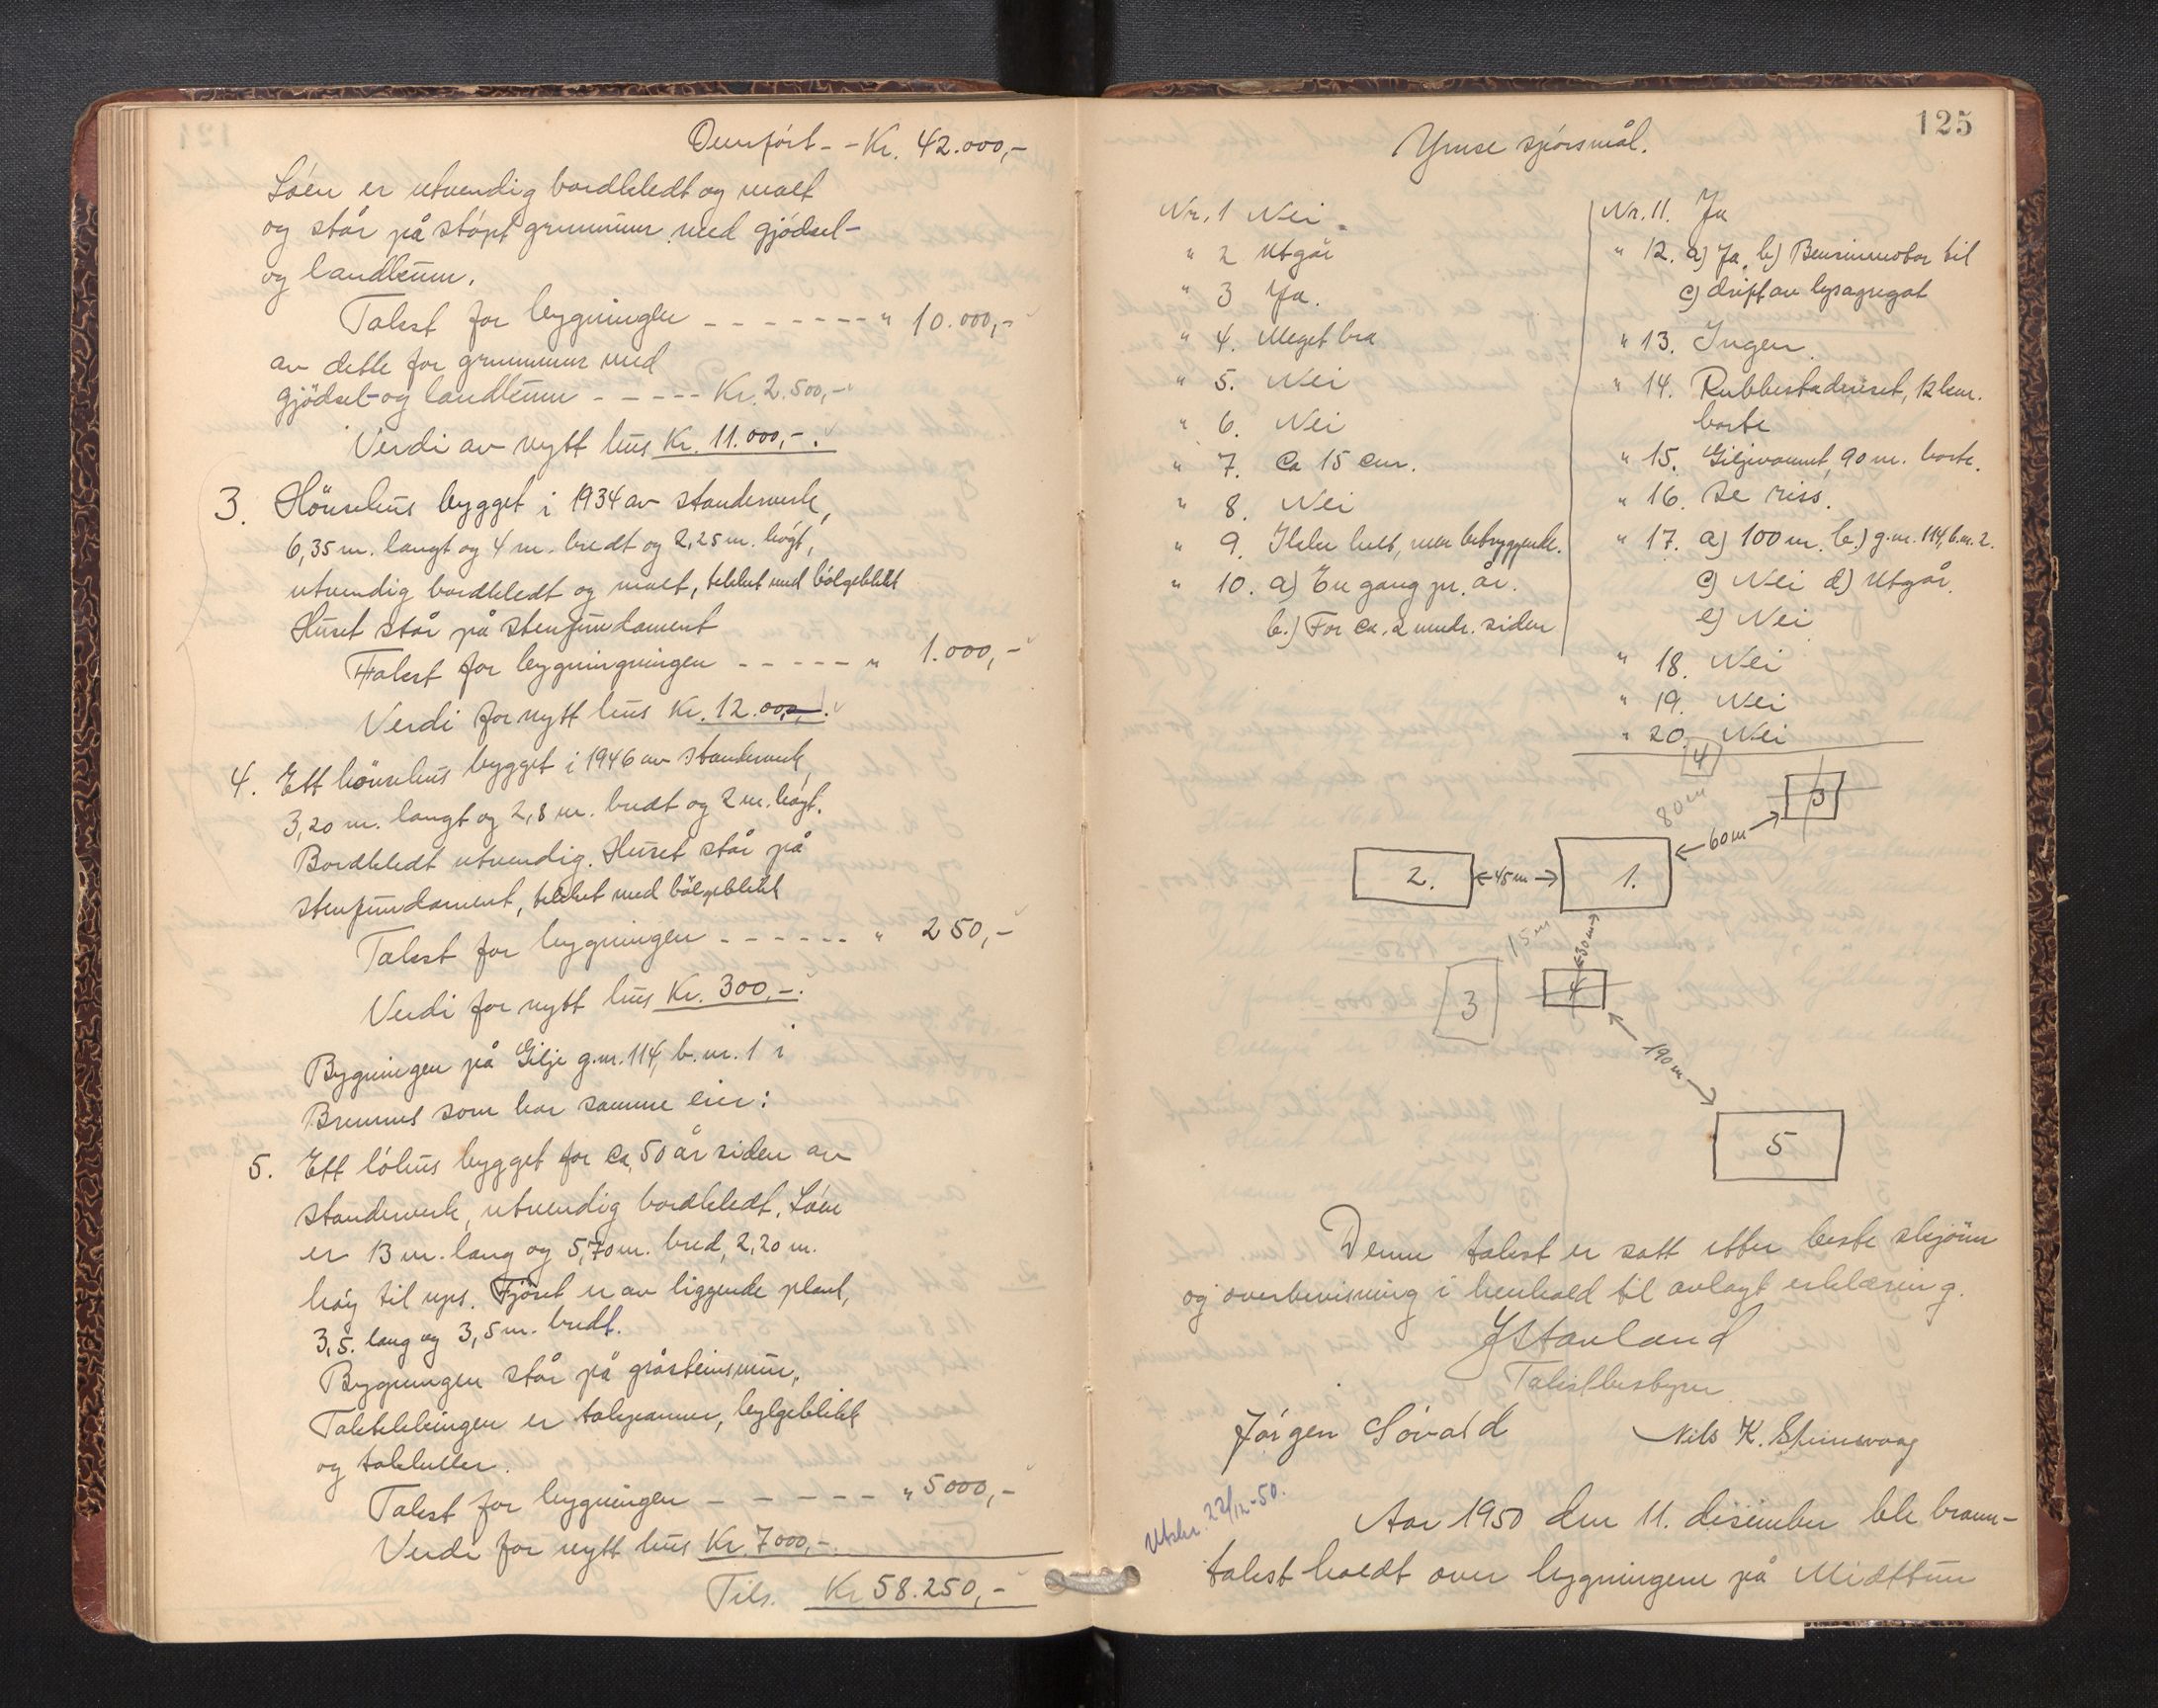 Overfört - - Kr. 42.000,-
Löen er utvendig bordkledt og malt
og står på stöpt grunnmur med gjödsel-
og landkum.
Takst for bygningen - - - - - - - " 10.000,-
av dette for grunnmur med
gjödsel- og landkum - - - - - Kr. 2.500,-
Verdi av nytt hus Kr. 11.000,-.
3. Hönsehus bygget i 1934 av standerverk,
6,35 m. langt og 4 m. bredt og 2,25 m. högt,
utvendig bordkledt og malt, tekket med bölgeblikk
Huset står på stenfundament
Takst for bygningningen - - - - - " 1.000,-
Verdi for nytt hus Kr. 12.000,-.
4. Ett hönsehus bygget i 1946 av standerverk,
3,20 m. langt og 2,8 m. bredt og 2 m. högt.
Bordkledt utvendig. Huset står på
stenfundament, tekket med bölgeblikk
Takst for bygningen - - - - - - " 250,-
Verdi for nytt hus Kr. 300,-.
Bygningen på Gilje g.nr. 114, b.nr. 1 i
Bremnes som har samme eier:
5. Ett löhus bygget for ca. 50 år siden av
standerverk, utvendig bordkledt. Löen
er 13 m. lang og 5,70 m. bred, 2,20 m.
höy til ups. Fjöset er av liggende plank,
3,5. lang og 3,5 m. bredt.
Bygningen står på gråsteinsmur.
Taktekkingen er takpanner, bylgeblikk
og takheller.
Takst for bygningen - - - - - " 5000,-
Verdi for nytt hus Kr. 7000,-
Tils. Kr 58.250,-
125
Ymse spörsmål.
Nr. 1 Nei.
" 2 Utgår
" 3 Ja.
" 4. Meget bra
" 5. Nei
" 6. Nei
" 7. Ca 15 cm.
" 8. Nei
" 9. Ikke helt, men betryggende.
" 10. a) En gang pr. år.
b.) For ca. 2 mndr. siden
Nr. 11. Ja
" 12. a) Ja, b) Bensinmotor til
c) drift av lysagregat
" 13. Ingen.
" 14. Rubbestadneset, 12 km.
borte
" 15. Giljevannet, 90 m. borte.
" 16. Se riss.
" 17. a) 100 m. b.) g.nr. 114, b.nr. 2.
c) Nei d) Utgår.
e) Nei
" 18. Nei
" 19. Nei
" 20. Nei
4
80 m
3
60 m
2.
45 m
1.
15 m
30 m
3
4
190 m
5
Denne takst er satt etter beste skjönn
og overbevisning i henhold til avlagt erklæring.
J Stavland
Takstbestyrer
Jörgen Sövold
Nils K. Steinsvaag
Utskr. 22/12-50.
Aar 1950 den 11. desember ble brann-
takst holdt over bygningene på Midttun